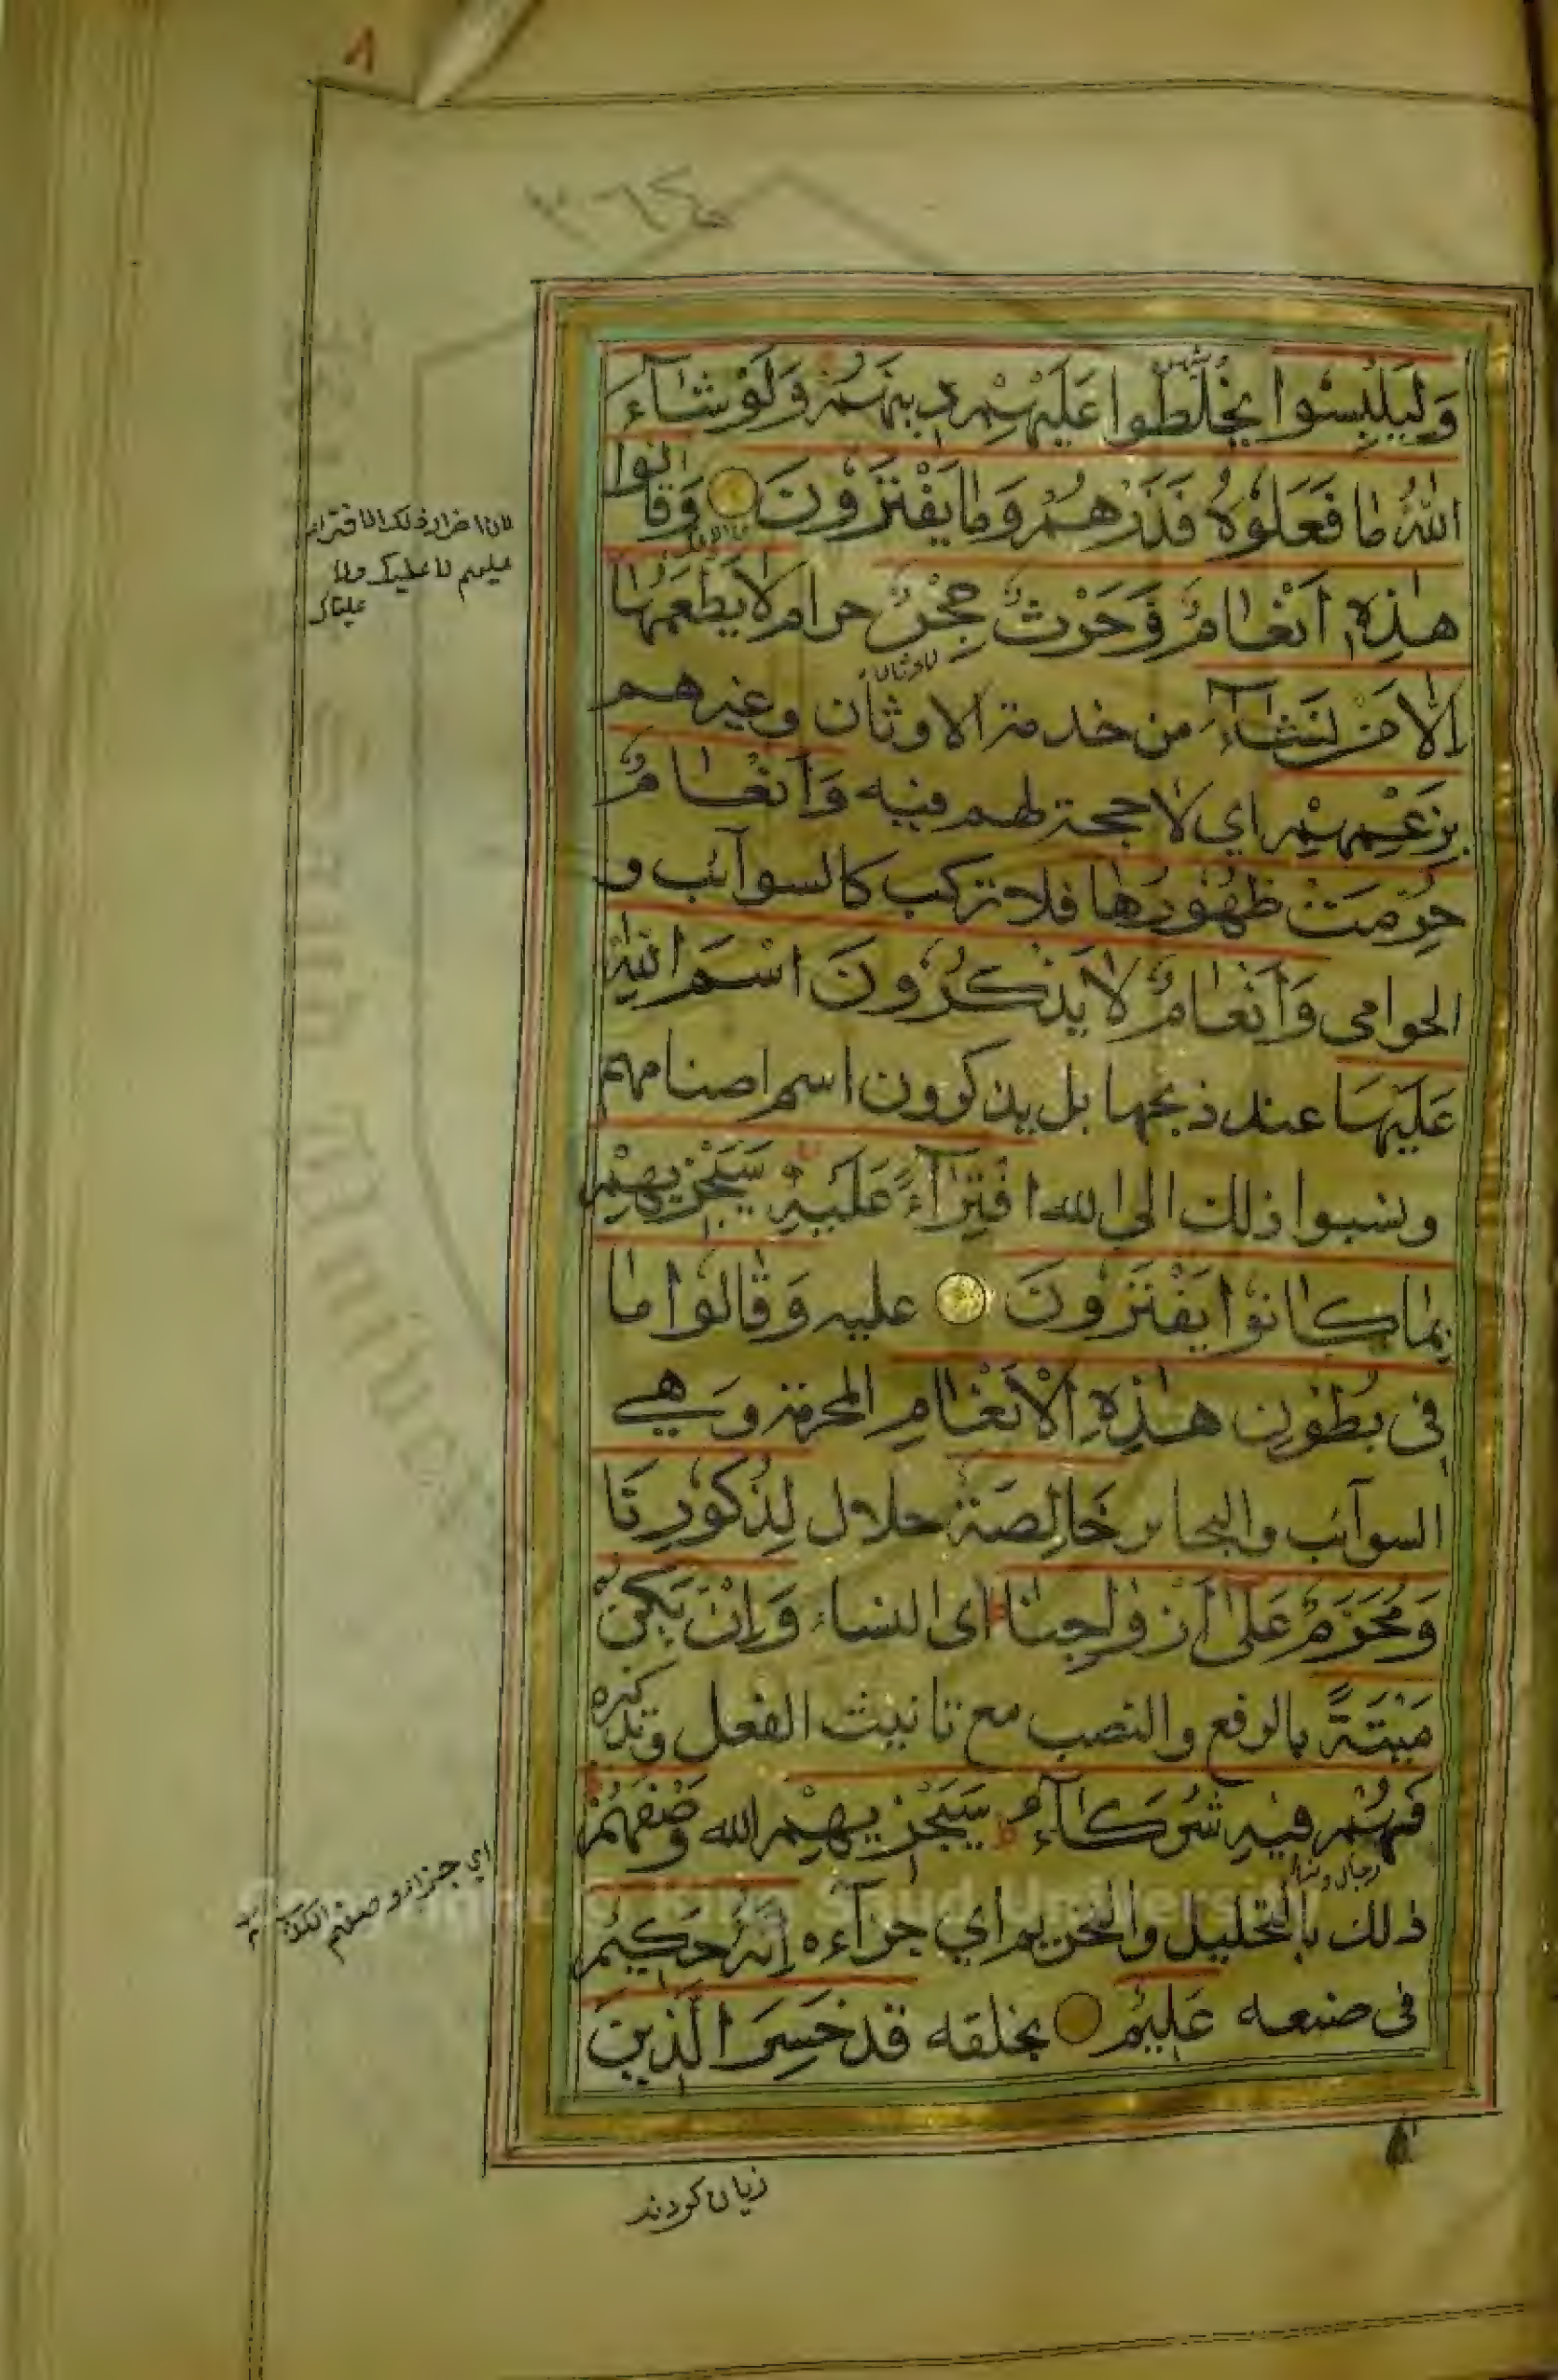 ٨
وَلِيَلْبِسُوا يخلطوا عَلَيْهِمْ دِينَهُمْ وَلَوْ شَآءَ
اللّٰهُ مَا فَعَلُوْهُ فَذَرْهُمْ وَمَا يَفْتَرُوْنَ وَقَالُوا
هٰذِهٖ اَنْعَامٌ وَحَرْثٌ حِجْرٌ حرام لَا يَطْعَمُهَا
اِلَّا مَنْ نَشَآءُ من خدمة الاوثان وغيرهم
بِزَعْمِهِمْ اي لا حجة لهم فيه وَاَنْعَامٌ
حُرِّمَتْ ظُهُوْرُهَا فلا تركب كالسوآئب و
الحوامى وَاَنْعَامٌ لَا يَذْكُرُوْنَ اسْمَ اللّٰهِ
عَلَيْهَا عند ذبحها بل يذكرون اسم اصنامهم
ونسبوا ذلك الى الله افْتِرَآءً عَلَيْهِ سَيَجْزِيْهِمْ
بِمَا كَانُوْا يَفْتَرُوْنَ عليه وَقَالُوْا مَا
فِى بُطُوْنِ هٰذِهِ الْاَنْعَامِ المحرمة وهي
السوآئب والبحائر خَالِصَةٌ حلال لِذُكُوْرِنَا
وَمُحَرَّمٌ عَلٰى اَزْوَاجِنَا اى النساء وَاِنْ يَكُنْ
مَيْتَةً بالرفع والنصب مع تانيث الفعل وتذكيره
فَهُمْ فِيْهِ شُرَكَآءُ سَيَجْزِيْهِمْ الله وَصْفَهُمْ
ذلك بالتحليل والتحريم اي جزآءه اِنَّهُ حَكِيْمٌ
فى صنعه عَلِيْمٌ بخلقه قَدْ خَسِرَ الَّذِيْنَ
لان اضرار ذلك الافتراء
عليهم لا عليك ولا
علينا
اي جزاء وصفهم الكذب
زيان كردند